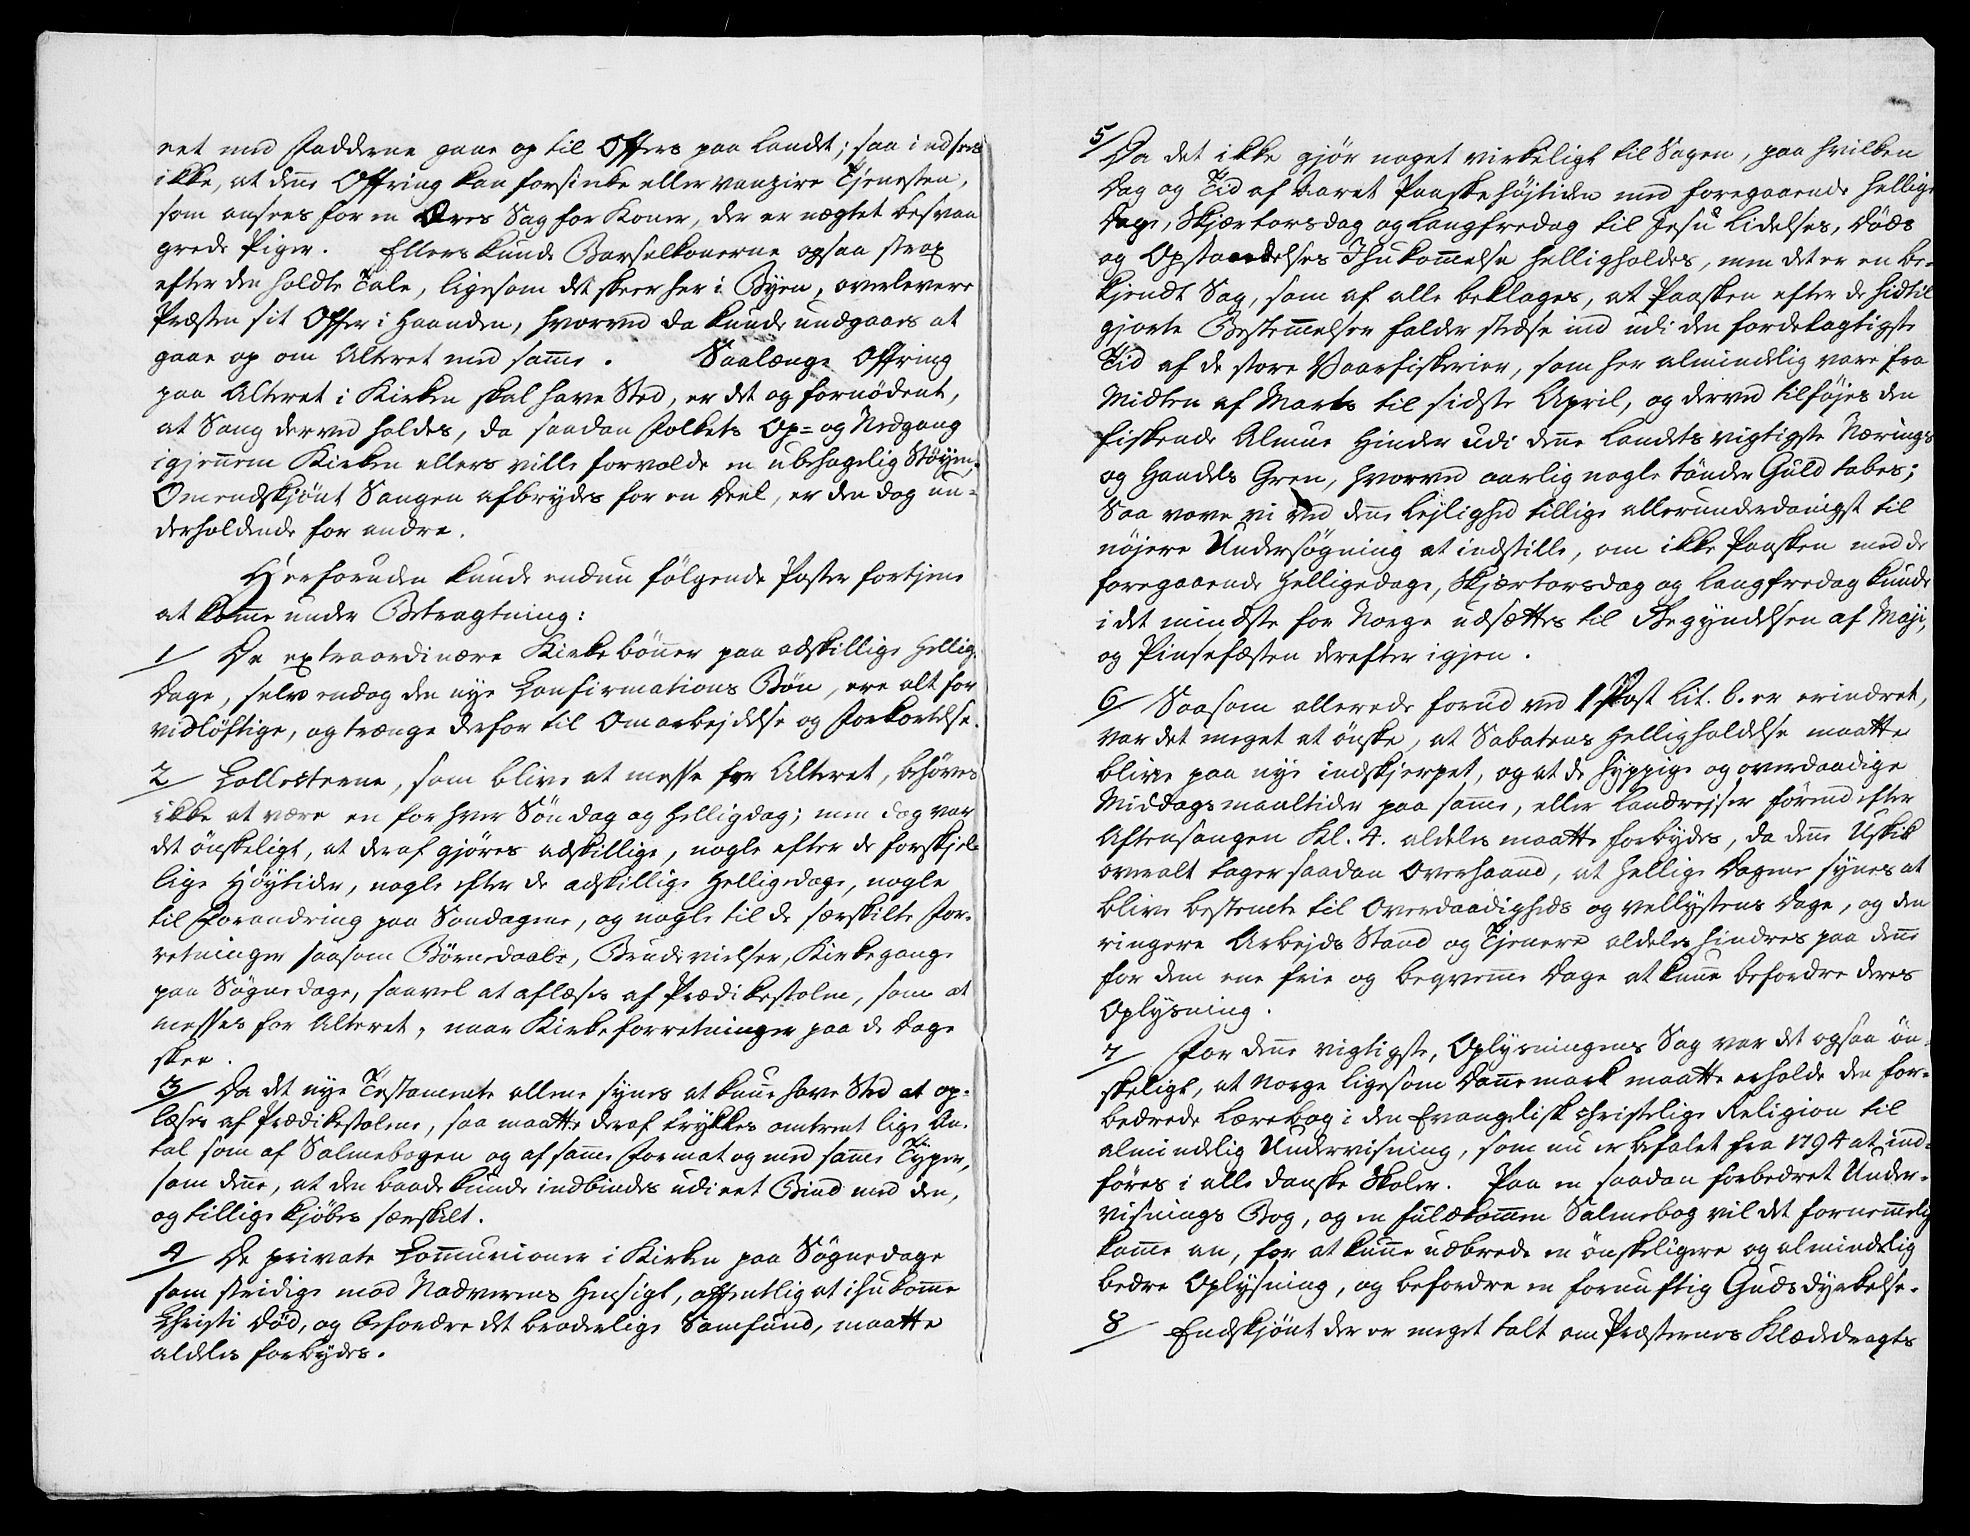 net med Fadderne gaae op til Offers paa Landet; saa indsees
ikke, at denne Offring kan forsinke eller vanzire Tjenesten,
som ansees for en Æres Sag for Koner, der er nægtet besvan
grede Piger. Ellers kunde Barselkonerne ogsaa strax
efter den holdte Tale, ligesom det skeer her i Byen, overlevere
Præsten sit Offer i Haanden, hvorved da kunde undgaaes at
gaae op om Alteret med samme. Saalænge Offring
paa Alteret i Kirken skal have Sted, er det og fornødent,
at Sang derved holdes, da saadan Folkets Op= og Nedgang
igjennem Kirken ellers ville forvolde en ubehagelig Støyen.
Omendskjønt Sangen afbrydes for en Deel, er den dog un-
derholdende for andre.
Herforuden kunde endnu følgende Poster fortjene
at komme under Betragtning:
1/ De extraordinære Kirkebønner paa adskillige Hellig
Dage, selv endog den nye Confirmations Bøn, ere alt for
vidløftige, og trænge derfor til Omarbejdelse og Forkortelse.
2/ Collecterne, som blive at messe for Alteret, behøves
ikke at være en for hver Søndag og Helligdag; men dog var
det ønskeligt, at deraf gjøres adskillige, nogle efter de forskjel-
lige Høytider, nogle efter de adskillige Helligedage, nogle
til Forandring paa Søndagene, og nogle til de særskilte For-
retninger saasom Børnedaab, Brudevielser, Kirkegange
paa Søgnedage, saavel at aflæses af Prædikestolen, som at
messes for Alteret, naar Kirkeforretninger paa de Dage
skee.
3/ Da det nye Testamente allene synes at kunne have Sted at op-
læses af Prædikestolene, saa maatte deraf trykkes omtrent lige An-
tal som af Salmebogen og af samme Format og med samme Typer,
som denne, at den baade kunde indbindes udi eet Bind med den,
og tillige kjøbes særskilt.
4/ De private Communioner i Kirken paa Søgnedage
som stridige mod Nadverens Hensigt, offentlig at ihukomme
Christi Død, og befordre det broderlige Samfund, maatte
aldeles forbydes.
5/ Da det ikke gjør noget virkeligt til Sagen, paa hvilken
Dag og Tid af Aaret Paaskehøjtiden med foregaaende Hellige
Dage, Skjærtorsdag og Langfredag til Jesu Lidelses, Døds
og Opstandelses Ihukommelse helligholdes, men det er en be-
kjendt Sag, som af alle beklages, at Paasken efter de hidtil
gjorte Bestemmelser falder stedse ind udi den fordelagtigste
Tid af de store Vaarfiskerier, som her almindelig vare fra
Midten af Marts til sidste April, og derved tilføjes den
fiskende Almue Hinder udi denne Landets vigtigste Nærings
og Handels Green, hvorved aarlig nogle Tønder Guld tabes;
Saa vove vi ved denne Lejlighed tillige allerunderdanigst til
nøjere Undersøgning at indstille, om ikke Paasken med de
foregaaende Helligedage, Skjærtorsdag og Langfredag kunde
i det mindste for Norge udsættes til Begyndelsen af Maji,
og Pinsefæsten derefter igjen.
6/ Saasom allerede forud ved 1 Post Lit. b. er erindret,
var det meget at ønske, at Sabatens Helligholdelse maatte
blive paa nye indskjerpet, og at de hyppige og overdaadige
Middagsmaaltider paa samme, eller Landrejser førend efter
Aftensangen Kl. 4. aldeles maatte forbydes, da denne Uskik
overalt tager saadan Overhaand, at Hellige Dagene synes at
blive bestemte til Overdaadigheds og Vellystens Dage, og den
ringere Arbejds Stand og Tjenere aldeles hindres paa denne
for dem ene frie og beqvemme Dage at kunne befordre deres
Oplysning.
7/ For denne vigtigste, Oplysningens Sag var det ogsaa øn-
skeligt, at Norge ligesom Dannemark maatte erholde den for-
bedrede Lærebog i den Evangelisk christelige Religion til
almindelig Undervisning, som nu er befalet fra 1794 at ind-
føres i alle danske Skoler. Paa en saadan forbedret Under-
visnings Bog, og en fuldkommen Salmebog vil det fornemmelig
komme an, for at kunne udbrede en ønskeligere og almindelig
bedre Oplysning, og befordre en fornuftig Gudsdyrkelse.
8/ Endskjønt der er meget talt om Præsternes Klædedragts